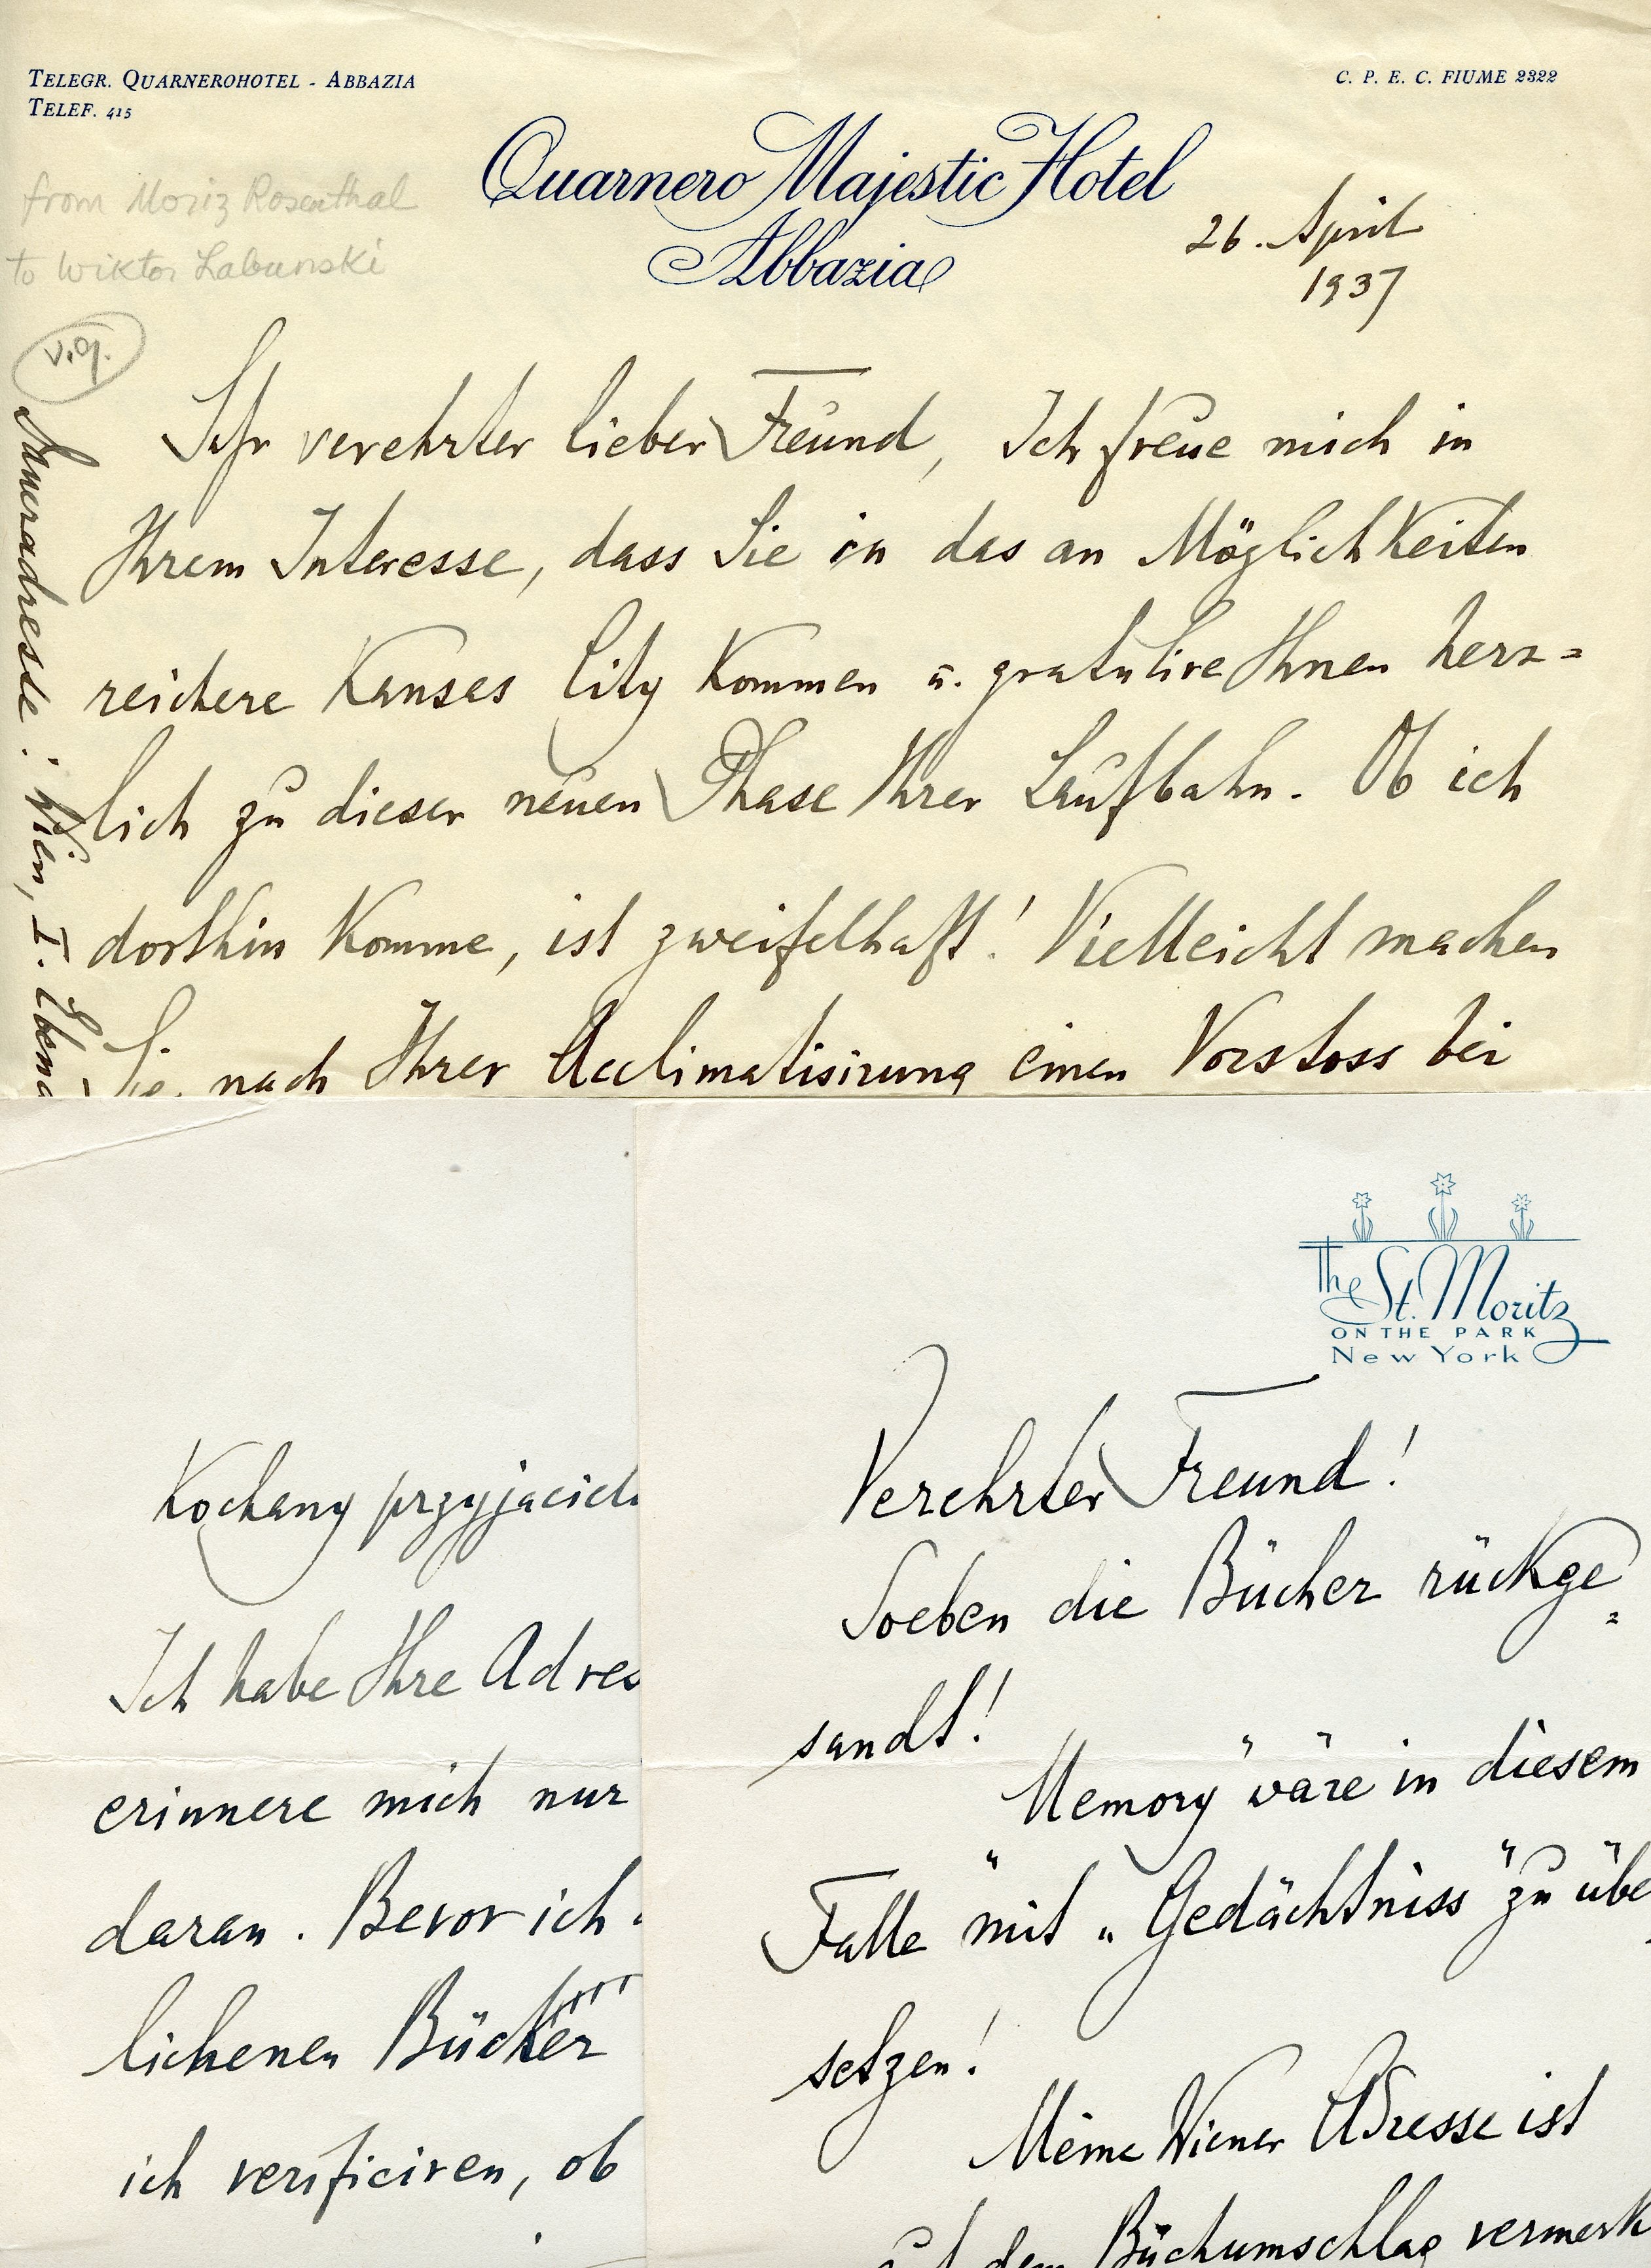 TELEGR. QUARNEROHOTEL - ABBAZIA
TELEF. 415
C. P. E. C. FIUME 2322
Quarnero Majestic Hotel
Abbazia
from Moriz Rosenthal
to Wiktor Labunski
26. April
1937
Sehr verehrter lieber Freund, Ich freue mich in
Ihrem Interesse, dass Sie in das an Möglichkeiten
reichere Kansas City kommen u. gratulire Ihnen herz=
lich zu dieser neuen Phase Ihrer Laufbahn. Ob ich
dorthin komme, ist zweifelhaft! Vielleicht machen
Sie nach Ihrer Acclimatisirung einen Vorstoss bei
Daueradresse: Wien, I.
The St. Moritz
ON THE PARK
New York
Kochany
Ich habe Ihre
erinnere mich nur
daran. Bevor ich
lichenen Bücher
ich verificiren, ob
Verehrter Freund!
Soeben die Bücher rückge=
sandt!
"Memory" wäre in diesem
Falle mit „Gedächtniss" zu übe
setzen!
Meine Wiener Adresse ist
dem Büchumschlag vermerk